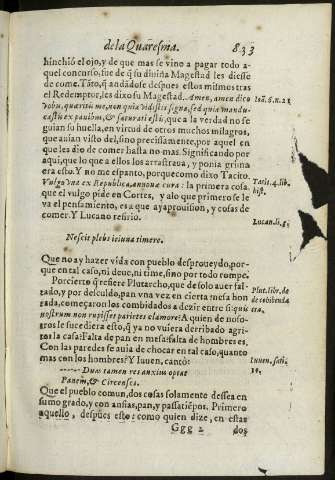 de la Quaresma. 833
hinchió el ojo, y de que mas se vino a pagar todo a-
quel concurso, fue de q̃ su diuina Magestad les diesse
de come. Tãto, q̃ andãdose despues estos mismos tras
el Redemptor, les dixo su Magestad. Amen, amen dico
vobis, quæritis me, non quia vidistis signa, sed quia mandu-
castis ex panibus, & saturati estis, que a la verdad no se
guian su huella, en virtud de otros muchos milagros,
que auian visto del, sino precissamente, por aquel en
que les dio de comer hasta no mas. Significando por
aqui, que lo que a ellos los arrastraua, y ponia grima
era esto. Y no me espanto, porque como dixo Tacito.
Vulgo vna ex Republica, annonæ cura: la primera cosa.
que el vulgo pide en Cortes, y a lo que primero se le
va el pensamiento, es a que aya prouision, y cosas de
comer. Y Lucano refirio.
Nescit plebs ieiuna timere.
Que no ay hazer vida con pueblo desproueydo, por-
que en tal caso, ni deue, ni time, sino por todo rompe.
Porcierto q̃ refiere Plutarcho, que de solo auer fal-
tado, y por descuido, pan vna vez en cierta mesa hon
rada, començaron los combidados a dezir entre si: quis
nostrum non rupisset parietes clamore? A quien de noso-
tros le sucediera esto, q̃ ya no vuiera derribado agri-
tos la casa? Falta de pan en mesa? falta de hombres es.
Con las paredes se auia de chocar en tal caso, quanto
mas con los hombres? Y Iuuen. cantò:
Duas tamen res anxius optat
Panem, & Circenses.
Que el pueblo comun, dos cosas solamente dessea en
sumo grado, y con ansias, pan, y passatiẽpos. Primero
aquello, despues esto: como quien dize, en estas
Ggg 2 dos
Ioã. 6. n. 21
Tacit. 4. lib.
hist.
Lucan. li. 3.
Plut. lib. de
de cohibenda
ira.
Iuuen. sati.
10.